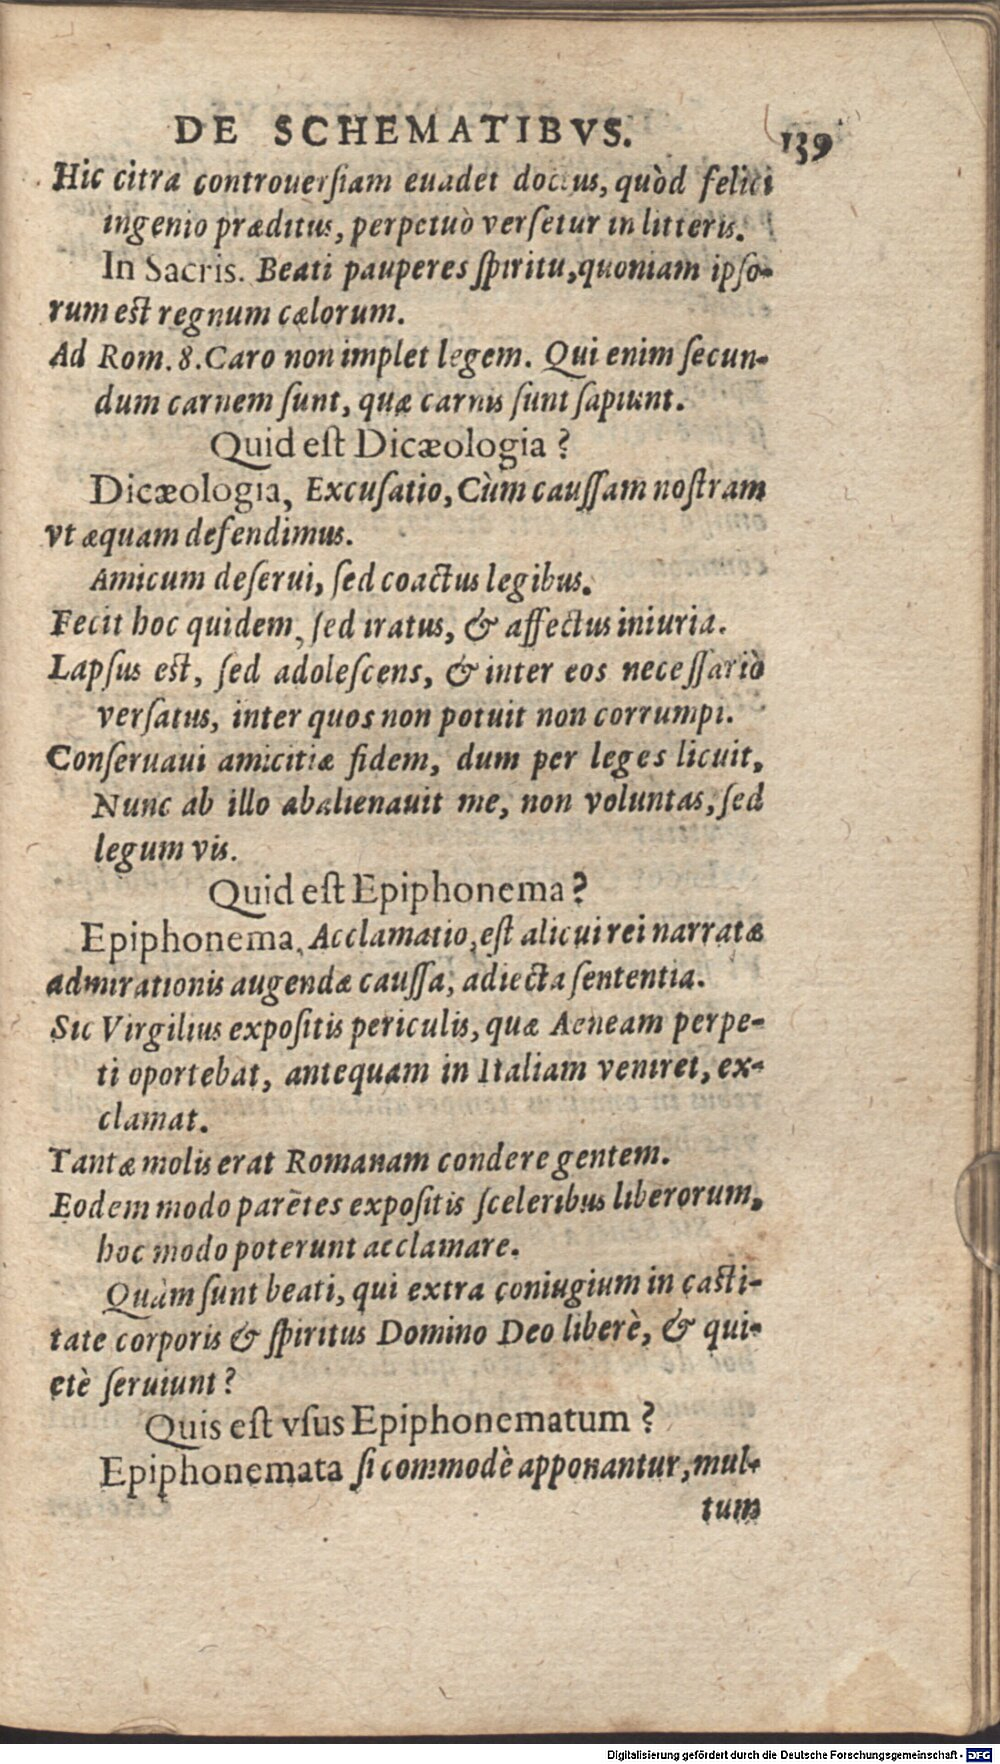 DE SCHEMATIBVS. 139
Hic citra controuerſiam euadet doctus, quòd felici
ingenio præditus, perpetuò verſetur in litteris.
In Sacris. Beati pauperes ſpiritu, quoniam ipſo-
rum est regnum cælorum.
Ad Rom. 8. Caro non implet legem. Qui enim ſecun-
dum carnem ſunt, quæ carnis ſunt ſapiunt.
Quid eſt Dicæologia?
Dicæologia, Excuſatio, Cùm cauſſam noſtram
vt æquam defendimus.
Amicum deſerui, ſed coactus legibus.
Fecit hoc quidem, ſed iratus, & affectus iniuria.
Lapſus eſt, ſed adoleſcens, & inter eos neceſſariò
verſatus, inter quos non potuit non corrumpi.
Conſeruaui amicitiæ fidem, dum per leges licuit,
Nunc ab illo abalienauit me, non voluntas, ſed
legum vis.
Quid eſt Epiphonema?
Epiphonema, Acclamatio, eſt alicui rei narratæ
admirationis augendæ cauſſa, adiecta ſententia.
Sic Virgilius expoſitis periculis, quæ Aeneam perpe-
ti oportebat, antequam in Italiam veniret, ex-
clamat.
Tantæ molis erat Romanam condere gentem.
Eodem modo parẽtes expoſitis ſceleribus liberorum,
hoc modo poterunt acclamare.
Quàm ſunt beati, qui extra coniugium in caſti-
tate corporis & ſpiritus Domino Deo liberè, & qui-
etè ſeruiunt?
Quis eſt vſus Epiphonematum?
Epiphonemata ſi commodè apponantur, mul-
tum
Digitalisierung gefördert durch die Deutsche Forschungsgemeinschaft - DFG